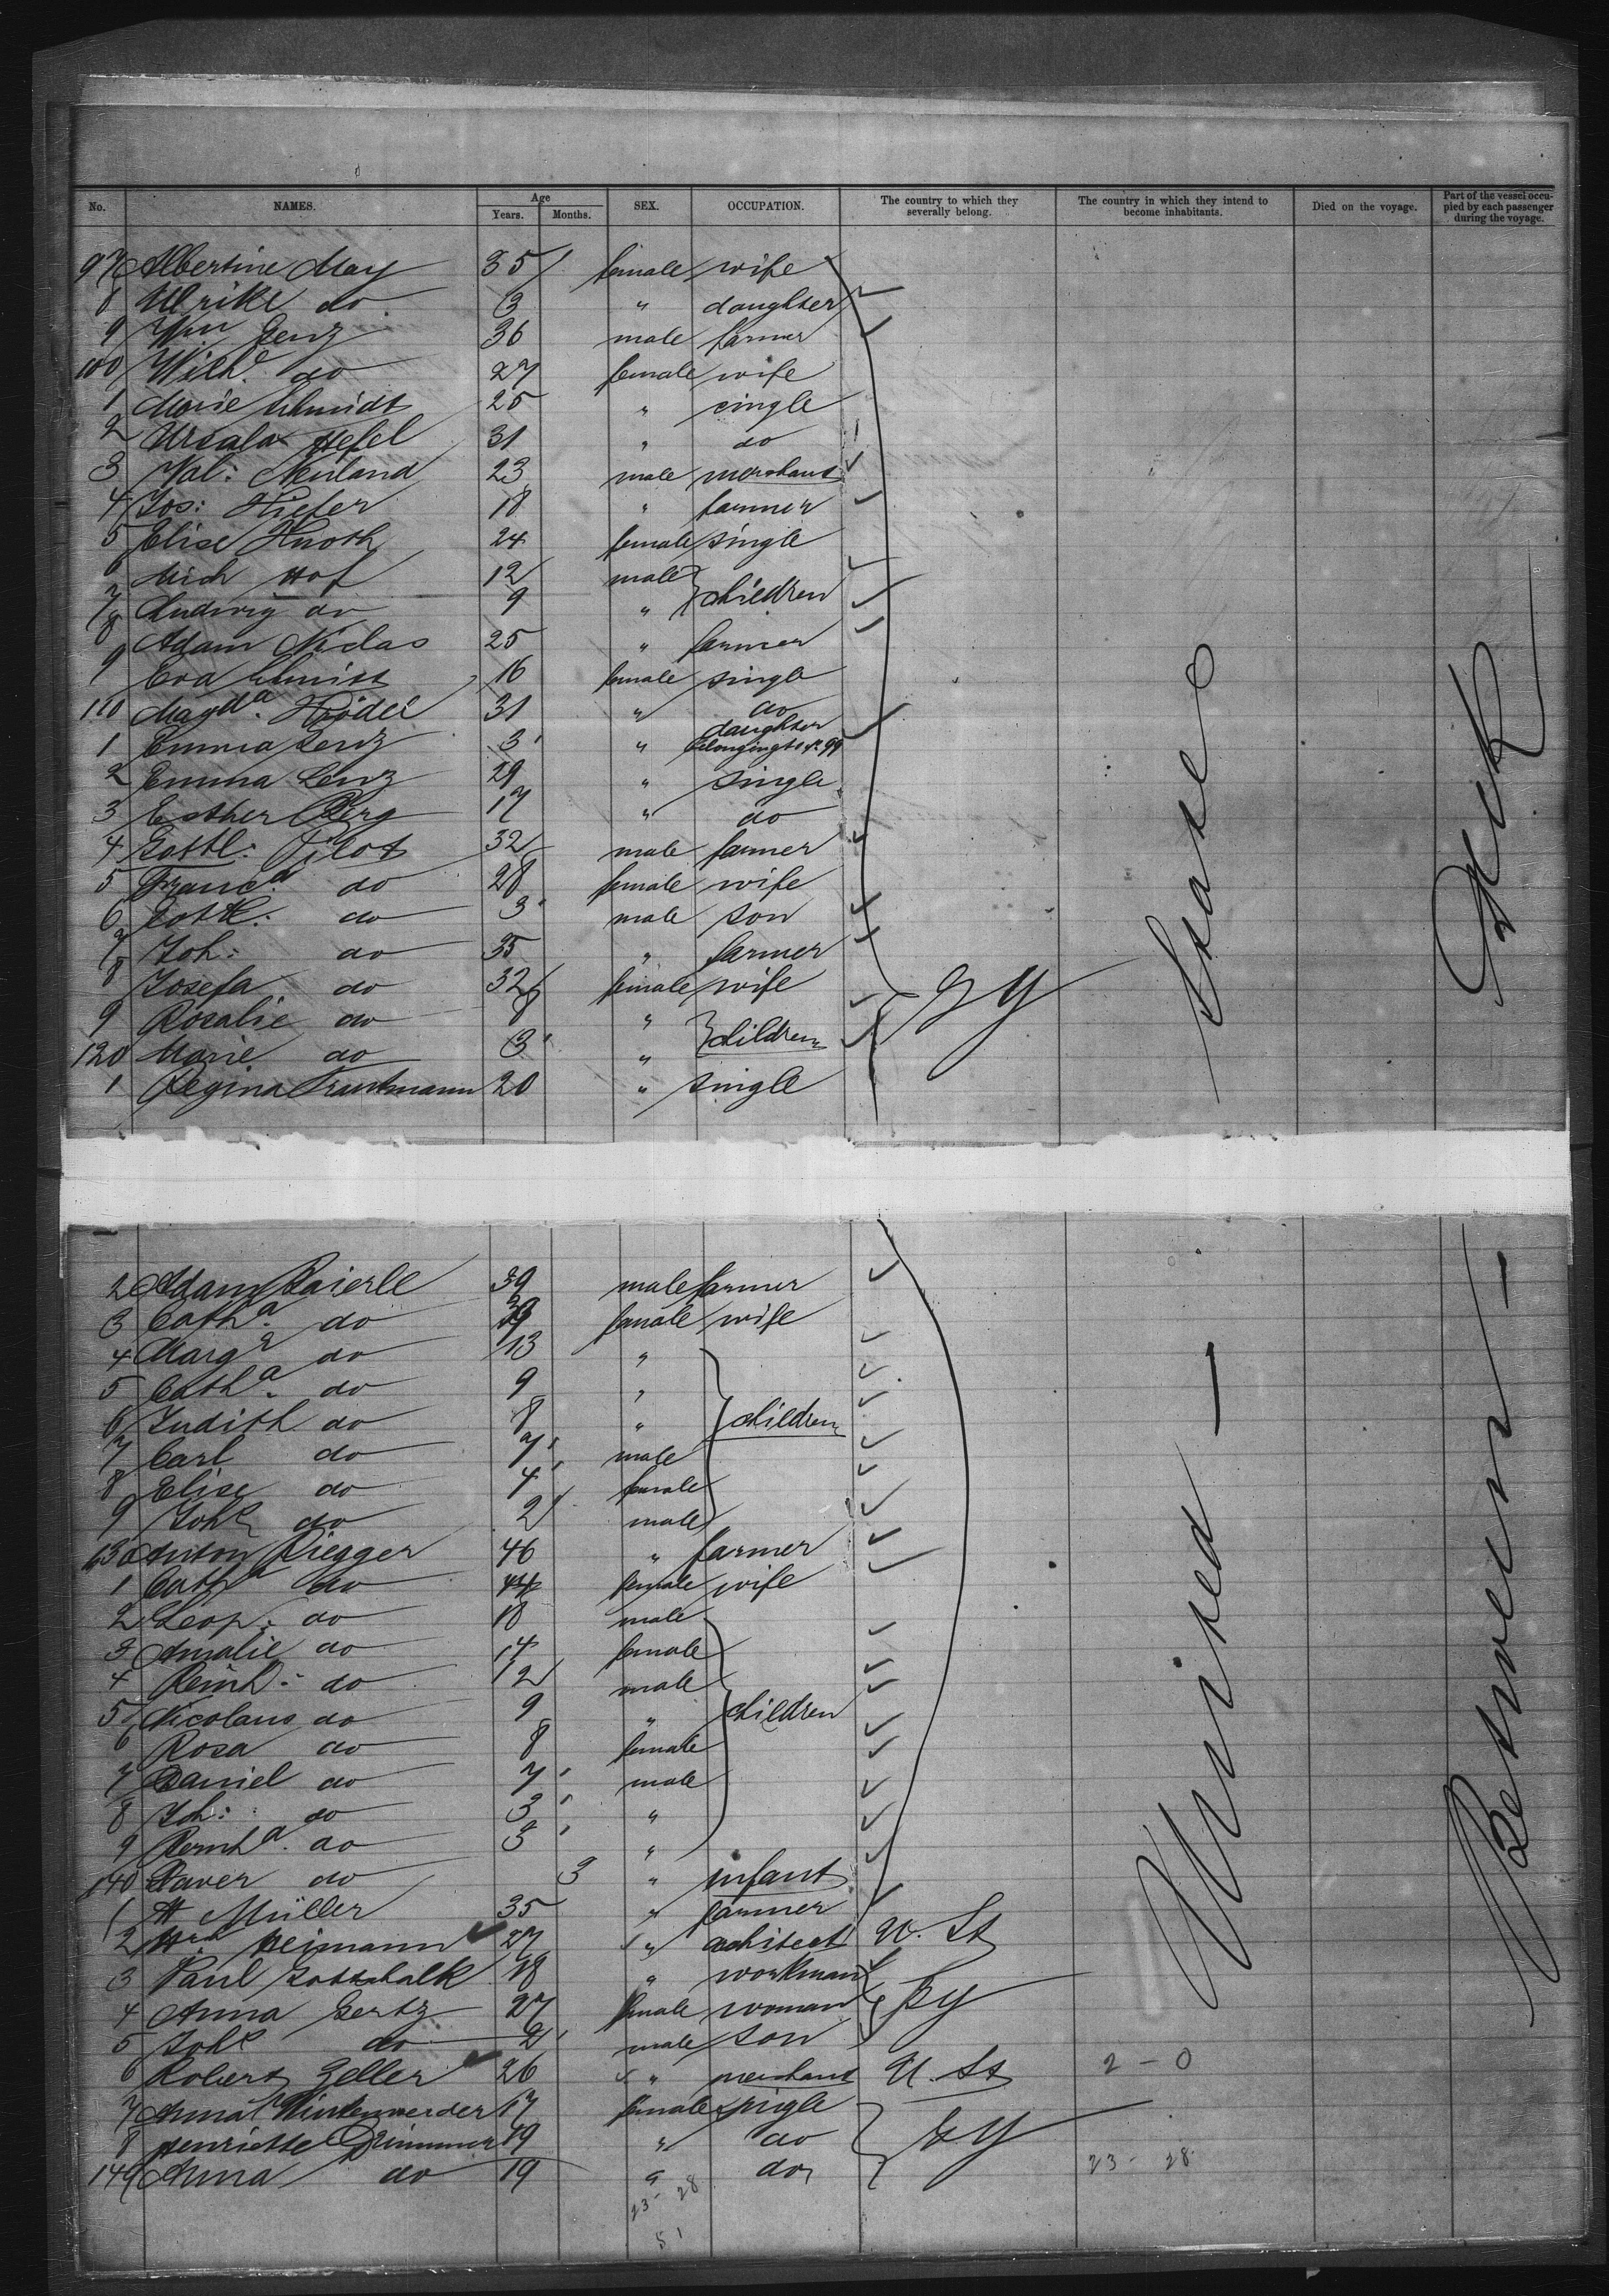 No. NAMES. Age Years. Months. SEX. OCCUPATION. The country to which they severally belong. The country in which they intend to become inhabitants. Died on the voyage. Part of the vessel occupied by each passenger during the voyage.
97 Albertine May 35 female wife
8 Ulrike do 3 " daughter
9 Wm Genz 36 male farmer
100 Wilhe. do 27 female wife
1 Marie Schmidt 25 " single
2 Ursula Hefel 31 " do
3 Val: Neuland 23 male merchant
4 Jos: Kiefer 18 " farmer
5 Elise Knoth 24 female single
6 Mich Hof 12 male children
7 Ludwig do 9 "
8 Adam Niclas 25 " farmer
9 Eva Schmitt 16 female single
110 Magda. Ködel 31 " do
1 Emma Genz 3 " daughter belonging to No. 99
2 Emma Lenz 29 " single
3 Esther Berg 17 " do
4 Gottl: Pilot 32 male farmer
5 Franca do 28 female wife
6 Gottl: do 3 male son
7 Joh: do 35 " farmer
8 Josefa do 32 female wife
9 Rosalie do 8 " children
120 Marie do 3 "
1 Regina Trautmann 20 " single
Gy
States
Deck
2 Adam Baierle 39 male farmer
3 Catha. do 39 female wife
4 Marg do 13 "
5 Catha. do 9 "
6 Judith do 8 " children
7 Carl do 7 male
8 Elise do 4 female
9 Johs do 2 male
130 Anton Riegger 46 " farmer
1 Catha do 44 female wife
2 Leop. do 18 male
3 Amalie do 14 female
4 Reinh: do 12 male
5 Nicolaus do 9 " children
6 Rosa do 8 female
7 Daniel do 7 male
8 Joh: do 3 "
9 Bernha. do 3 "
140 Xaver do 3 " infant
1 H Müller 35 " farmer
2 Hrm Heimann 27 " architect U. St
3 Paul Gottschalk 18 " workman
4 Anna Gertz 27 female woman Gy
5 Johs do 2 male son
6 Robert Zeller 26 " merchant U. St 2 - 0
7 Anna Winkenwerder 17 female single
8 Henriette Drimmer 19 " do Gy
149 Anna do 19 " do 23 - 28
23 - 28
51
United
Between